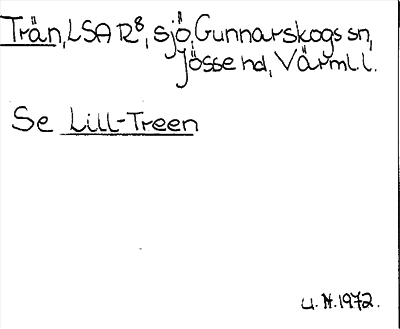 Trän, LSA R⁸, sjö, Gunnarskogs sn,
Jösse hd, Värml. l.
Se Lill-Treen
U. N. 1972.